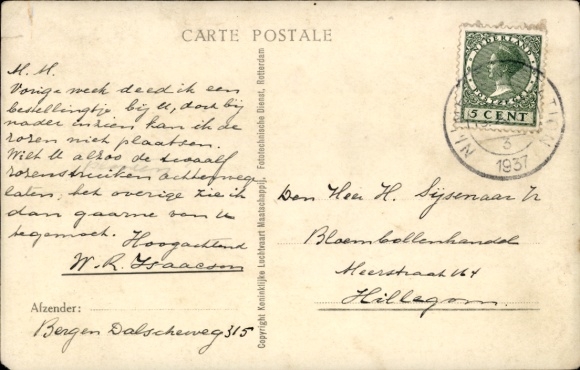 CARTE POSTALE
M. M.
Vorige week deed ik een
bestellingtje bij U, doch bij
nader inzien kan ik de
rozen niet plaatsen.
Wilt U alzoo de twaalf
rozenstruiken achterwege
laten, het overige zie ik
dan gaarne van U
tegemoet. Hoogachtend
W. R. Isaacson
Afzender:
Bergen Dalscheweg 315
Copyright Koninklijke Luchtvaart Maatschappij, Fototechnische Dienst, Rotterdam
NEDERLAND
5 CENT
3
1937
Den Heer H. Sijsenaar Jr
Bloembollenhandel
Meerstraat 164
Hillegom.